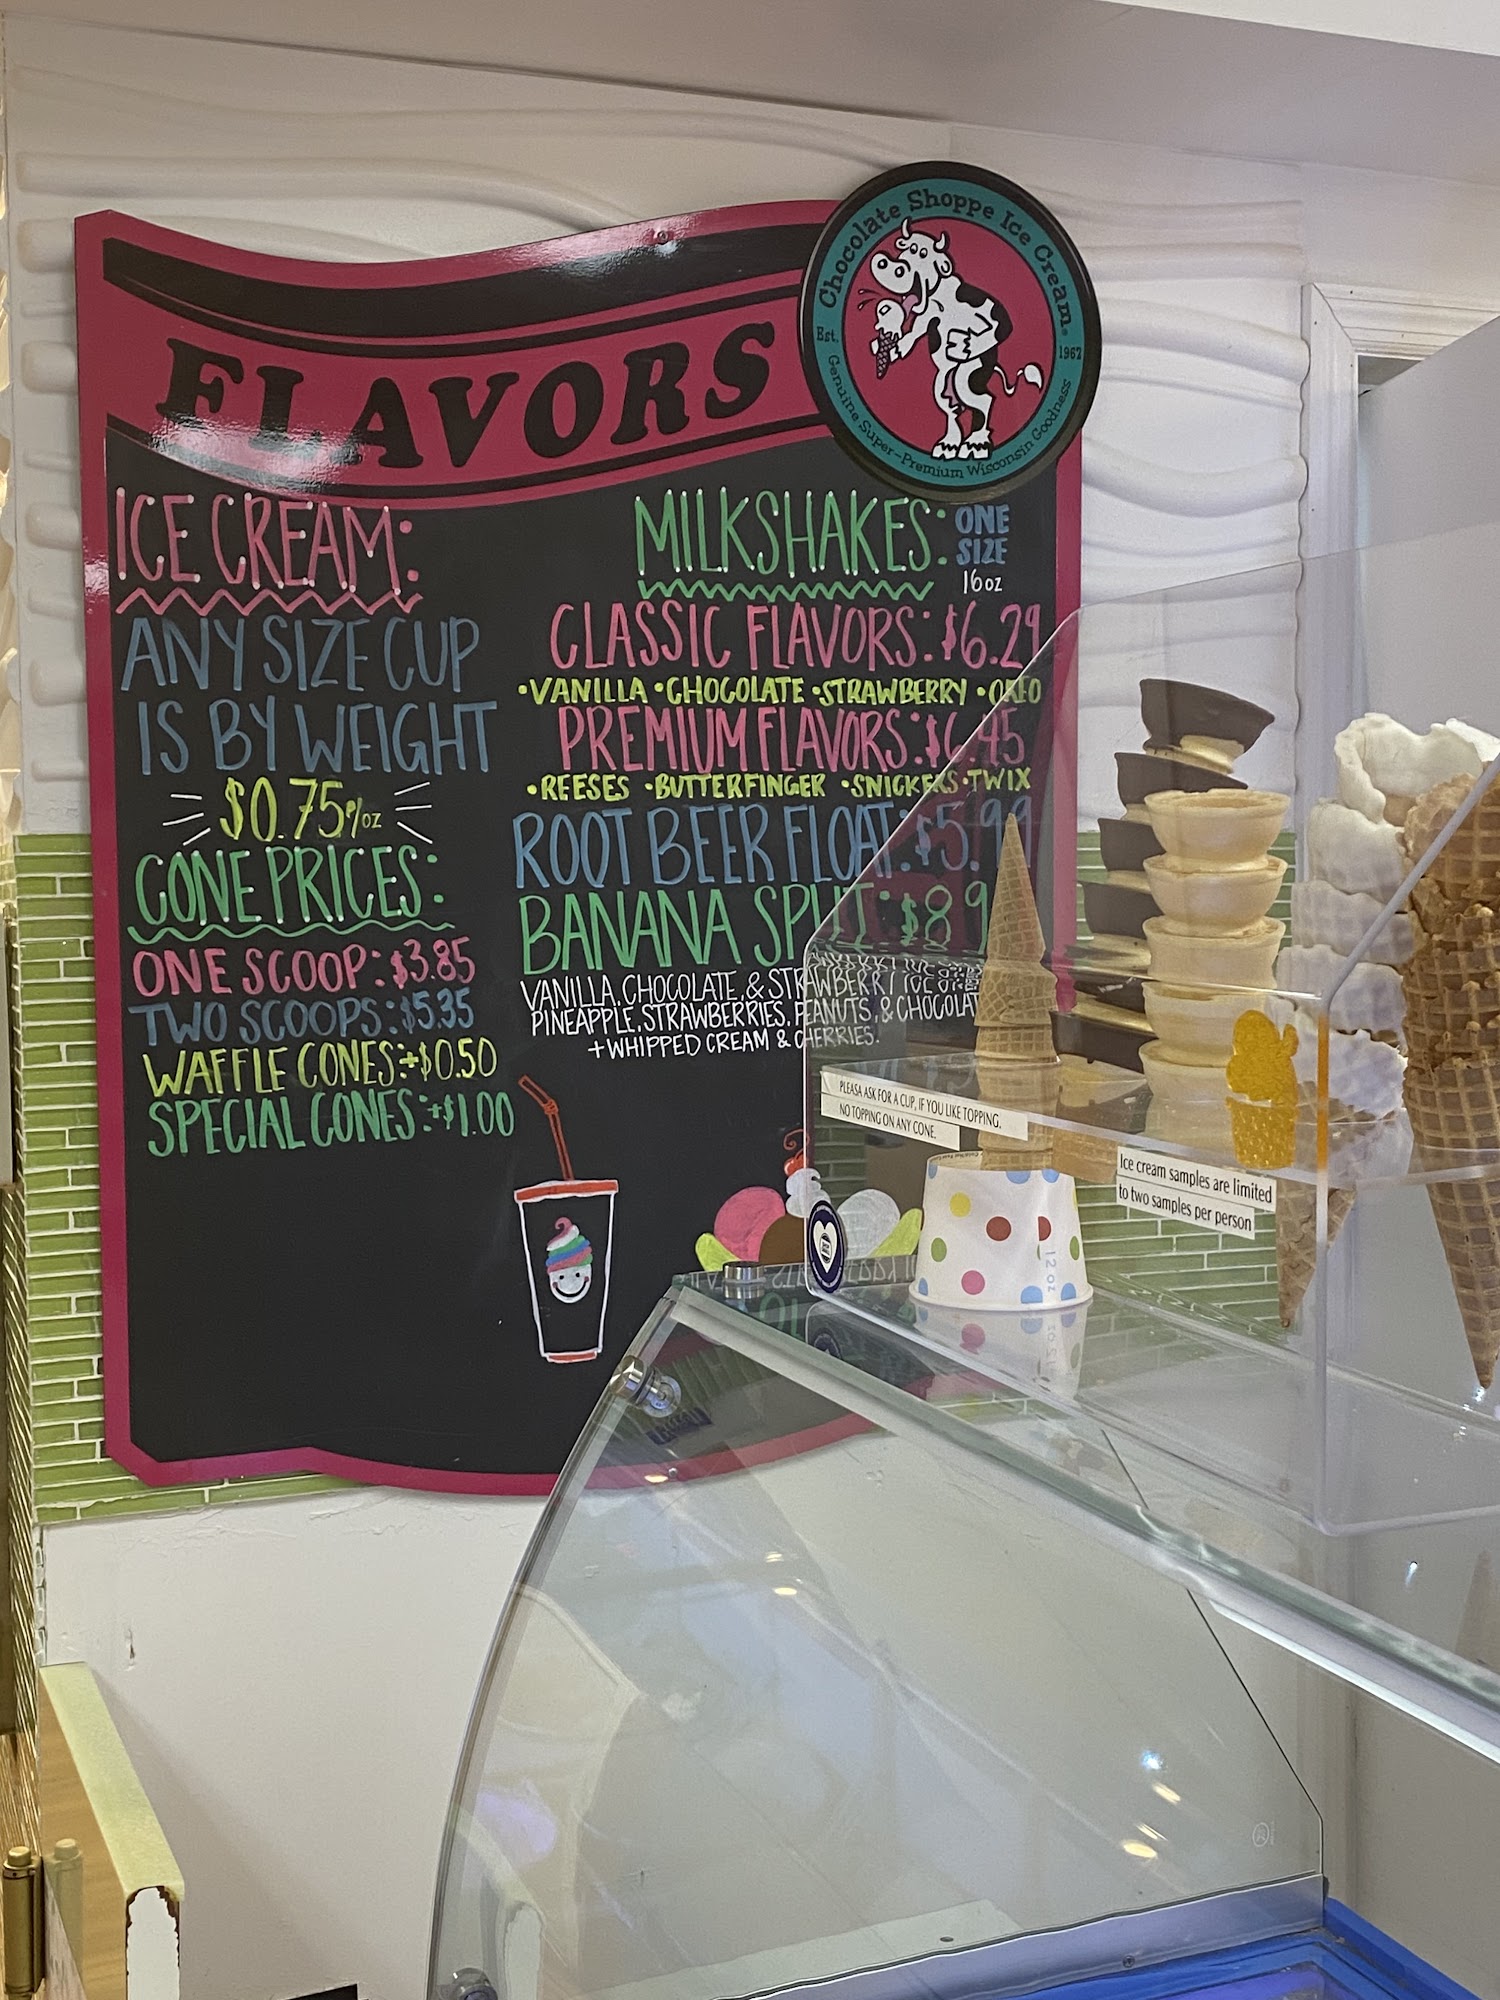 FLAVORS
Chocolate Shoppe Ice Cream®
Est. 1962
Genuine Super-Premium Wisconsin Goodness
ICE CREAM:
ANY SIZE CUP
IS BY WEIGHT
$0.75/oz
CONE PRICES:
ONE SCOOP: $3.85
TWO SCOOPS: $5.35
WAFFLE CONES: +$0.50
SPECIAL CONES: +$1.00
MILKSHAKES: ONE
SIZE
16 oz
CLASSIC FLAVORS: $6.29
•VANILLA •CHOCOLATE •STRAWBERRY •OREO
PREMIUM FLAVORS: $6.45
•REESES •BUTTERFINGER •SNICKERS •TWIX
ROOT BEER FLOAT: $5.99
BANANA SPLIT: $8.9
VANILLA, CHOCOLATE, & STRAWBERRY ICE
PINEAPPLE, STRAWBERRIES, PEANUTS, & CHOCOLAT
+ WHIPPED CREAM & CHERRIES.
PLEASA ASK FOR A CUP, IF YOU LIKE TOPPING.
NO TOPPING ON ANY CONE.
Ice cream samples are limited
to two samples per person
12 oz